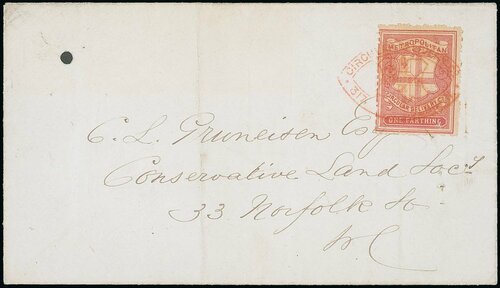 CIRCU
METROPOLITAN
CIRCULAR DELIVERY Co
ONE FARTHING
317
C. L. Gruneisen Esq
Conservative Land Socy
33 Norfolk St
W C